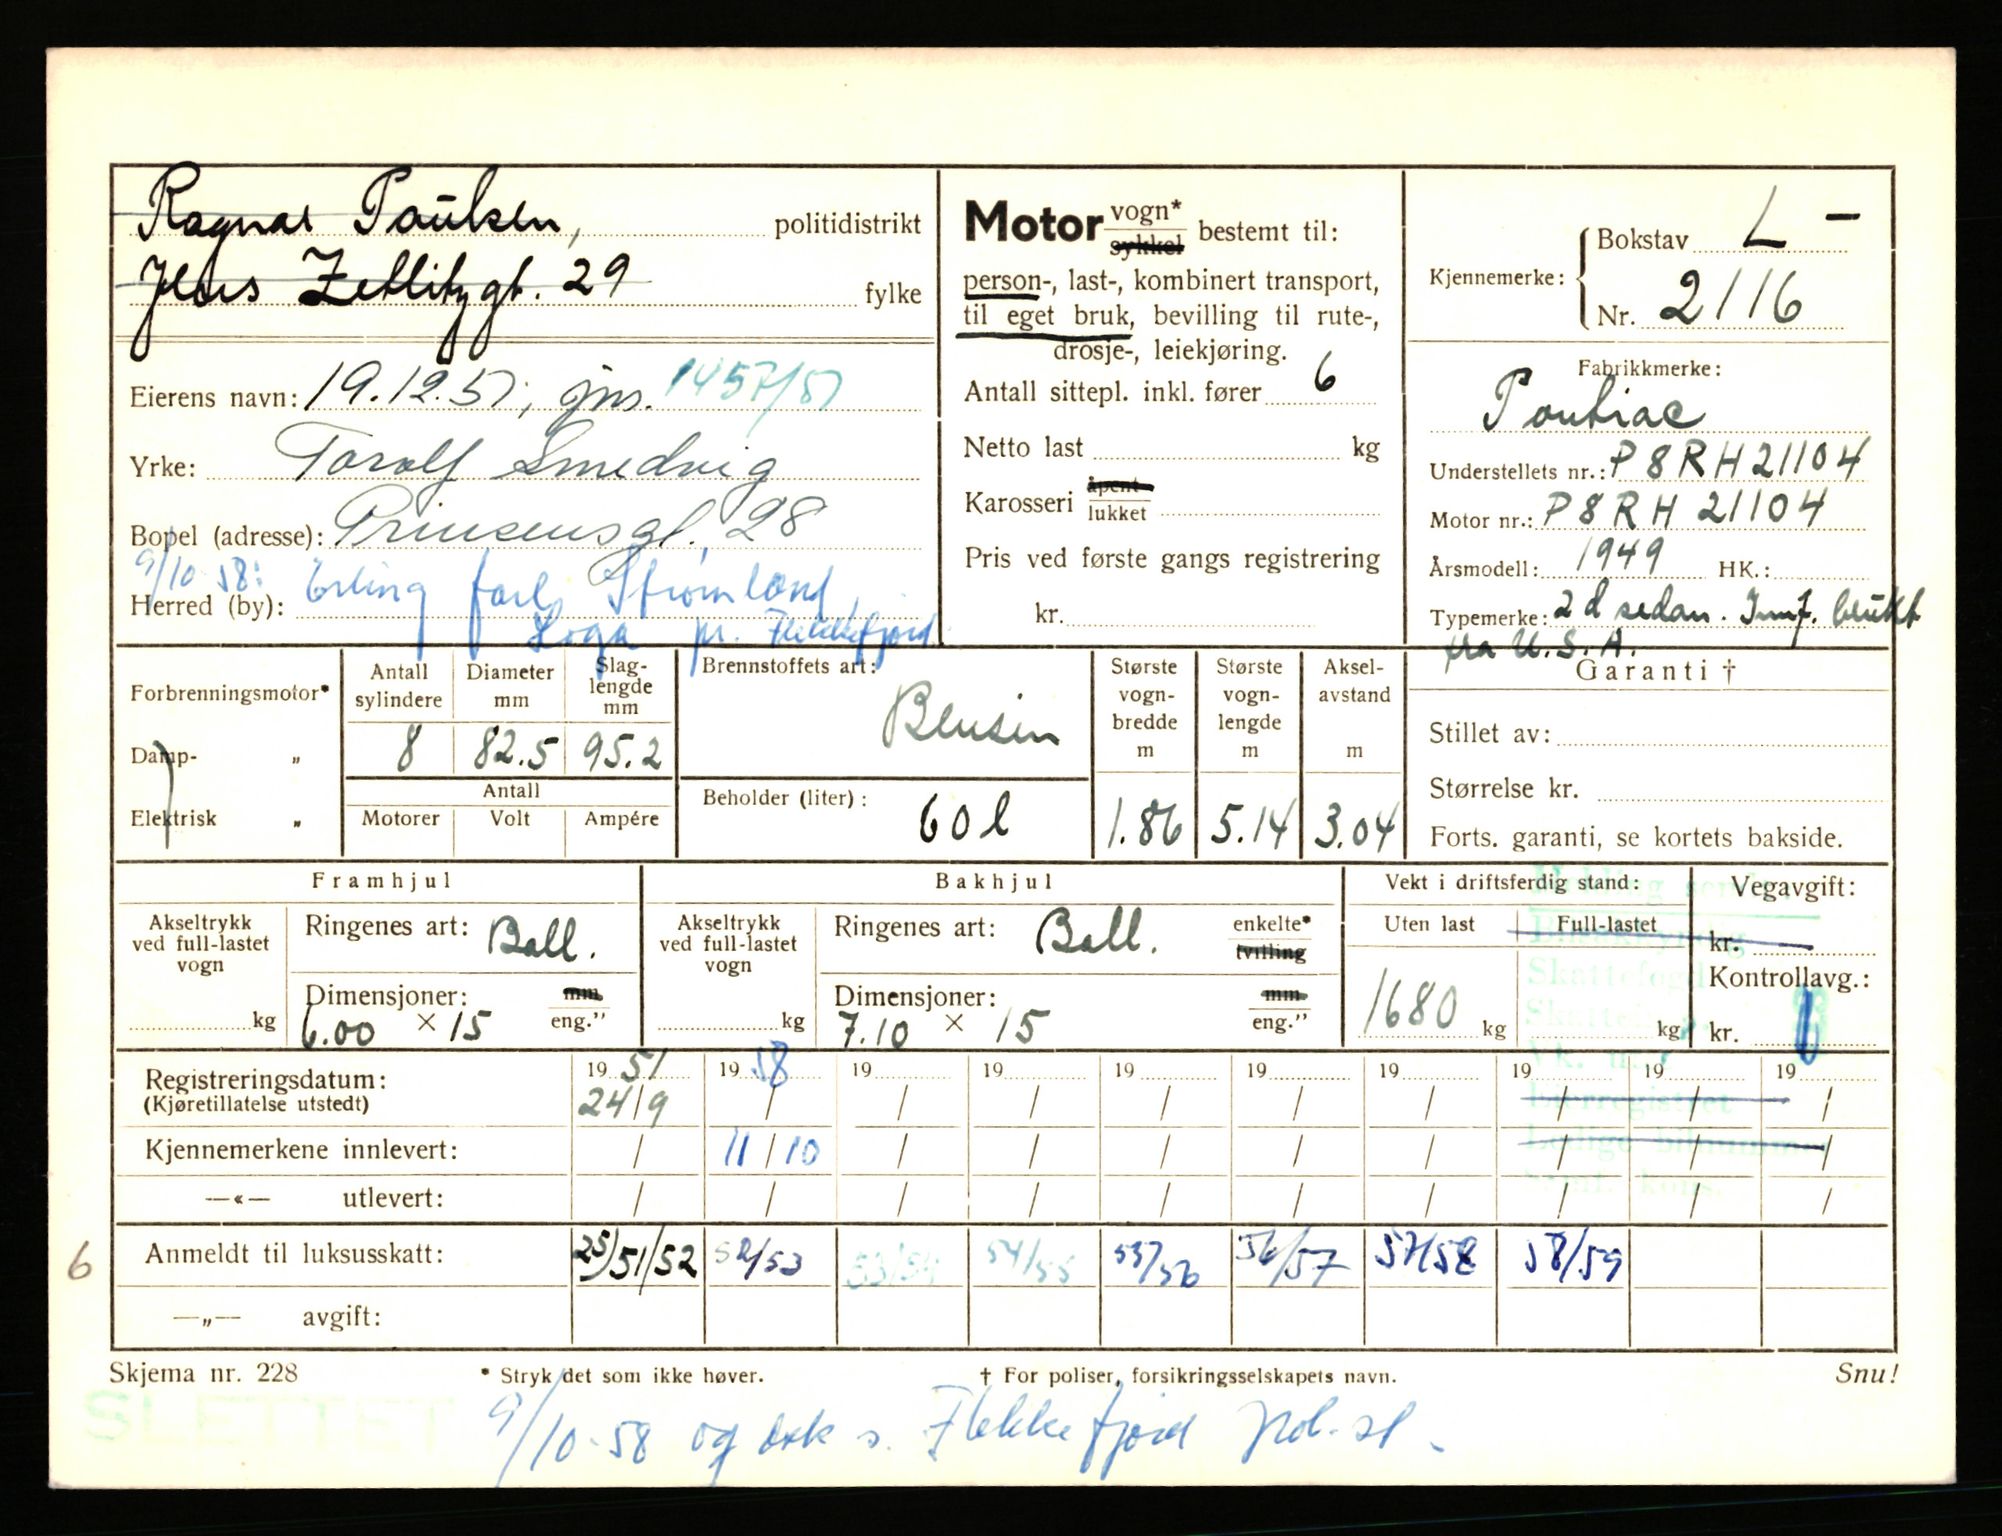 Ragnar Paulsen, politidistrikt
Jens Zetlitzgt. 29 fylke
Eierens navn: 19.12.51, jnr. 1457/51
Yrke: Toralf Smedvig
Bopel (adresse): Prinsensgt. 28
9/10 58: Erling Strømland,
Herred (by):
Loga pr. Flekkefjord.
Motor vogn* sykkel bestemt til:
person-, last-, kombinert transport,
til eget bruk, bevilling til rute-,
drosje-, leiekjøring.
Antall sittepl. inkl. fører 6
Netto last kg
Karosseri åpent lukket
Pris ved første gangs registrering
kr.
Kjennemerke: Bokstav L –
Nr. 2116
Fabrikkmerke:
Pontiac
Understellets nr.: P8RH21104
Motor nr.: P8RH 21104
Årsmodell: 1949 HK.:
Typemerke: 2 d sedan. Innf. brukt
fra U.S.A.
Forbrenningsmotor*
Damp- „
Elektrisk „
Antall sylindere 8
Diameter mm 82.5
Slag-lengde mm 95.2
Antall
Motorer Volt Ampére
Brennstoffets art: Bensin
Beholder (liter): 60 l
Største vogn-bredde m 1.86
Største vogn-lengde m 5.14
Aksel-avstand m 3.04
Garanti †
Stillet av:
Størrelse kr.
Forts. garanti, se kortets bakside.
Framhjul
Akseltrykk ved full-lastet vogn kg
Ringenes art: Ball.
Dimensjoner: mm eng."
6.00 × 15
Bakhjul
Akseltrykk ved full-lastet vogn kg
Ringenes art: Ball. enkelte* tvilling
Dimensjoner: mm eng."
7.10 × 15
Vekt i driftsferdig stand:
Uten last Full-lastet
1680 kg kg
Vegavgift:
kr.
Kontrollavg.:
kr.
Registreringsdatum: 19 51 19 58 19 19 19 19 19 19 19 19
(Kjøretillatelse utstedt) 24/9 / / / / / / / / /
Kjennemerkene innlevert: / 11/10 / / / / / / / /
—«— utlevert: / / / / / / / / / /
6 Anmeldt til luksusskatt: 25/51/52 52/53 53/54 54/55 55/56 56/57 57/58 58/59
—„— avgift:
Skjema nr. 228 * Stryk det som ikke høver. † For poliser, forsikringsselskapets navn. Snu!
SLETTET
9/10-58 og Flekkefjord pol.